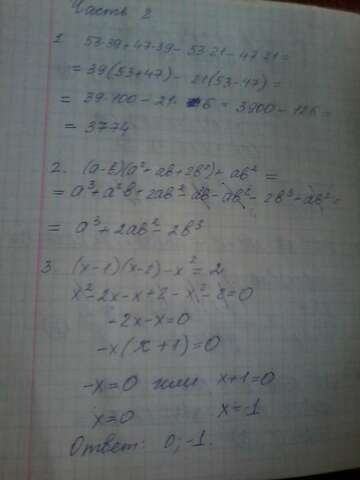 Часть 2
1. 53·39+47·39-53·21-47·21=
=39(53+47)-21(53-47)=
=39·100-21·6=3900-126=
=3774
2. (a-b)(a²+ab+2b²)+ab²=
=a³+a²b+2ab²-ab-ab²-2b³+ab²=
=a³+2ab²-2b³
3 (x-1)(x-2)-x²=2
x²-2x-x+2-x²-2=0
-2x-x=0
-x(x+1)=0
-x=0 или x+1=0
x=0 x=-1
Ответ: 0;-1.